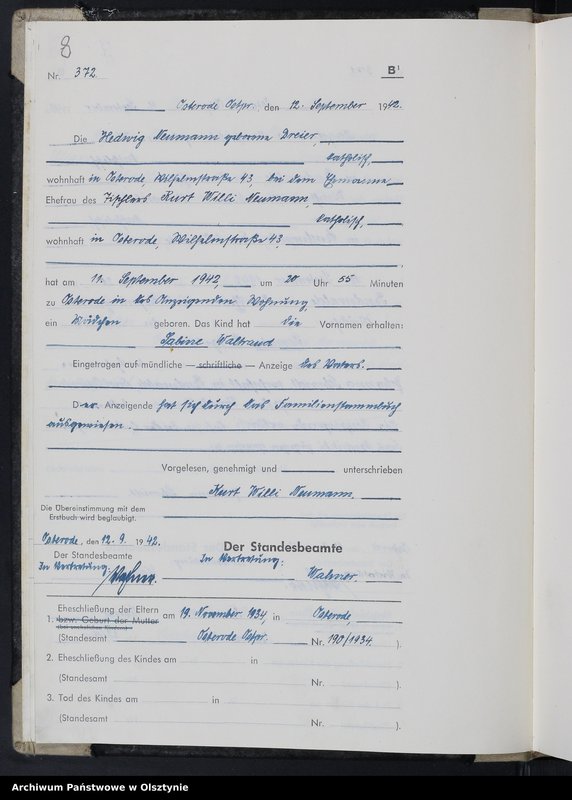 8
Nr. 372
B¹
Osterode Ostpr. den 12. September 1942.
Die Hedwig Neumann geborene Dreier,
katholisch,
wohnhaft in Osterode, Wilhelmstraße 43, bei dem Ehemanne,
Ehefrau des Tischlers Kurt Willi Neumann,
katholisch,
wohnhaft in Osterode, Wilhelmstraße 43,
hat am 11. September 1942, um 20 Uhr 55 Minuten
zu Osterode in des Anzeigenden Wohnung,
ein Mädchen geboren. Das Kind hat die Vornamen erhalten:
Sabine Waltraud
Eingetragen auf mündliche — schriftliche — Anzeige des Vaters.
Der Anzeigende hat sich durch das Familienstammbuch
ausgewiesen.
Vorgelesen, genehmigt und unterschrieben
Kurt Willi Neumann.
Die Übereinstimmung mit dem
Erstbuch wird beglaubigt.
Osterode, den 12. 9. 1942.
Der Standesbeamte
In Vertretung:
Der Standesbeamte
In Vertretung:
Wahner.
1. Eheschließung der Eltern
bzw. Geburt der Mutter
am 19. November 1934, in Osterode,
(Standesamt Osterode Ostpr. Nr. 190/1934. ).
2. Eheschließung des Kindes am in
(Standesamt Nr. ).
3. Tod des Kindes am in
(Standesamt Nr. ).
Archiwum Państwowe w Olsztynie